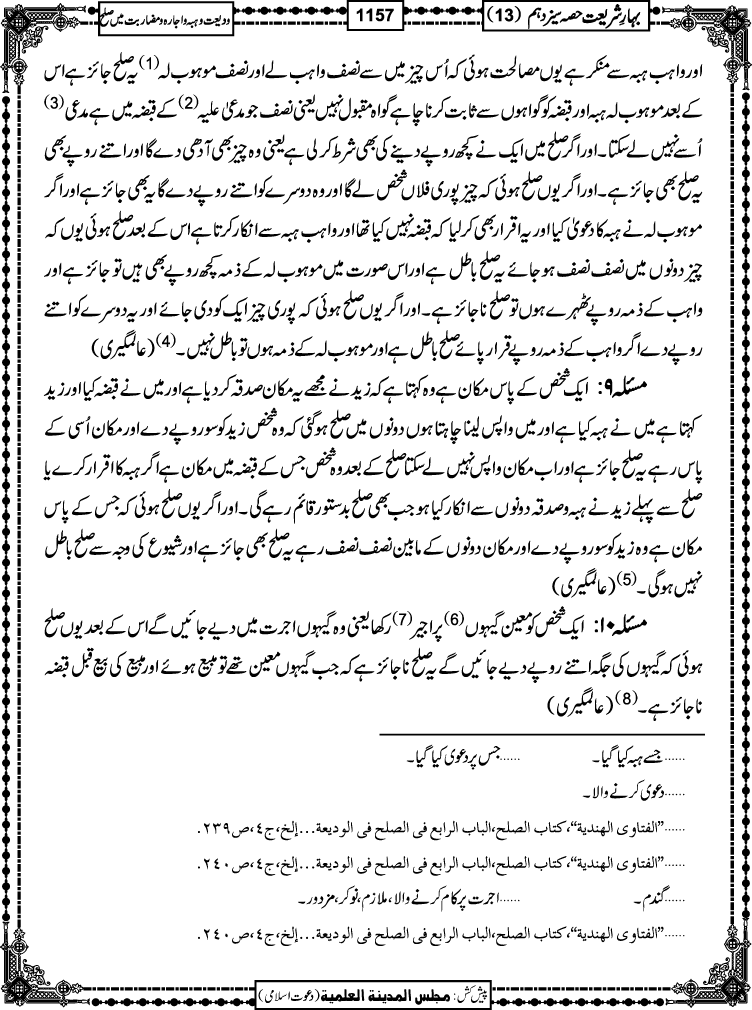 بہارِ شریعت حصہ سیزدہم (13)
1157
ودیعت و ہبہ و اجارہ و مضاربت میں صلح
اور واہب ہبہ سے منکر ہے یوں مصالحت ہوئی کہ اُس چیز میں سے نصف واہب لے اور نصف موہوب لہ (1) یہ صلح جائز ہے اس
کے بعد موہوب لہ ہبہ اور قبضہ کو گواہوں سے ثابت کرنا چاہے گواہ مقبول نہیں یعنی نصف جو مدعیٰ علیہ (2) کے قبضہ میں ہے مدعی (3)
اُسے نہیں لے سکتا۔ اور اگر صلح میں ایک نے کچھ روپے دینے کی بھی شرط کر لی ہے یعنی وہ چیز بھی آدھی دے گا اور اتنے روپے بھی
یہ صلح بھی جائز ہے۔ اور اگر یوں صلح ہوئی کہ چیز پوری فلاں شخص لے گا اور وہ دوسرے کو اتنے روپے دے گا یہ بھی جائز ہے اور اگر
موہوب لہ نے ہبہ کا دعویٰ کیا اور یہ اقرار بھی کر لیا کہ قبضہ نہیں کیا تھا اور واہب ہبہ سے انکار کرتا ہے اس کے بعد صلح ہوئی یوں کہ
چیز دونوں میں نصف نصف ہو جائے یہ صلح باطل ہے اور اس صورت میں موہوب لہ کے ذمہ کچھ روپے بھی ہیں تو جائز ہے اور
واہب کے ذمہ روپے ٹھہرے ہوں تو صلح ناجائز ہے۔ اور اگر یوں صلح ہوئی کہ پوری چیز ایک کو دی جائے اور یہ دوسرے کو اتنے
روپے دے اگر واہب کے ذمہ روپے قرار پائے صلح باطل ہے اور موہوب لہ کے ذمہ ہوں تو باطل نہیں۔ (4) (عالمگیری)
مسئلہ ۹: ایک شخص کے پاس مکان ہے وہ کہتا ہے کہ زید نے مجھے یہ مکان صدقہ کر دیا ہے اور میں نے قبضہ کیا اور زید
کہتا ہے میں نے ہبہ کیا ہے اور میں واپس لینا چاہتا ہوں دونوں میں صلح ہو گئی کہ وہ شخص زید کو سو روپے دے اور مکان اُسی کے
پاس رہے یہ صلح جائز ہے اور اب مکان واپس نہیں لے سکتا صلح کے بعد وہ شخص جس کے قبضہ میں مکان ہے اگر ہبہ کا اقرار کرے یا
صلح سے پہلے زید نے ہبہ و صدقہ دونوں سے انکار کیا ہو جب بھی صلح بدستور قائم رہے گی۔ اور اگر یوں صلح ہوئی کہ جس کے پاس
مکان ہے وہ زید کو سو روپے دے اور مکان دونوں کے مابین نصف نصف رہے یہ صلح بھی جائز ہے اور شیوع کی وجہ سے صلح باطل
نہیں ہوگی۔ (5) (عالمگیری)
مسئلہ ۱۰: ایک شخص کو معین گیہوں (6) پر اجیر (7) رکھا یعنی وہ گیہوں اجرت میں دیے جائیں گے اس کے بعد یوں صلح
ہوئی کہ گیہوں کی جگہ اتنے روپے دیے جائیں گے یہ صلح ناجائز ہے کہ جب گیہوں معین تھے تو مبیع ہوئے اور مبیع کی بیع قبل قبضہ
ناجائز ہے۔ (8) (عالمگیری)
......جسے ہبہ کیا گیا۔ ......جس پر دعویٰ کیا گیا۔
......دعویٰ کرنے والا۔
......”الفتاوى الهندية“، كتاب الصلح،الباب الرابع فى الصلح فى الوديعة...إلخ،ج٤،ص٢٣٩.
......”الفتاوى الهندية“، كتاب الصلح،الباب الرابع فى الصلح فى الوديعة...إلخ،ج٤،ص٢٤٠.
......گندم۔ ......اجرت پر کام کرنے والا، ملازم، نوکر، مزدور۔
......”الفتاوى الهندية“، كتاب الصلح،الباب الرابع فى الصلح فى الوديعة...إلخ،ج٤،ص٢٤٠.
پیش کش: مجلس المدینۃ العلمیۃ (دعوت اسلامی)